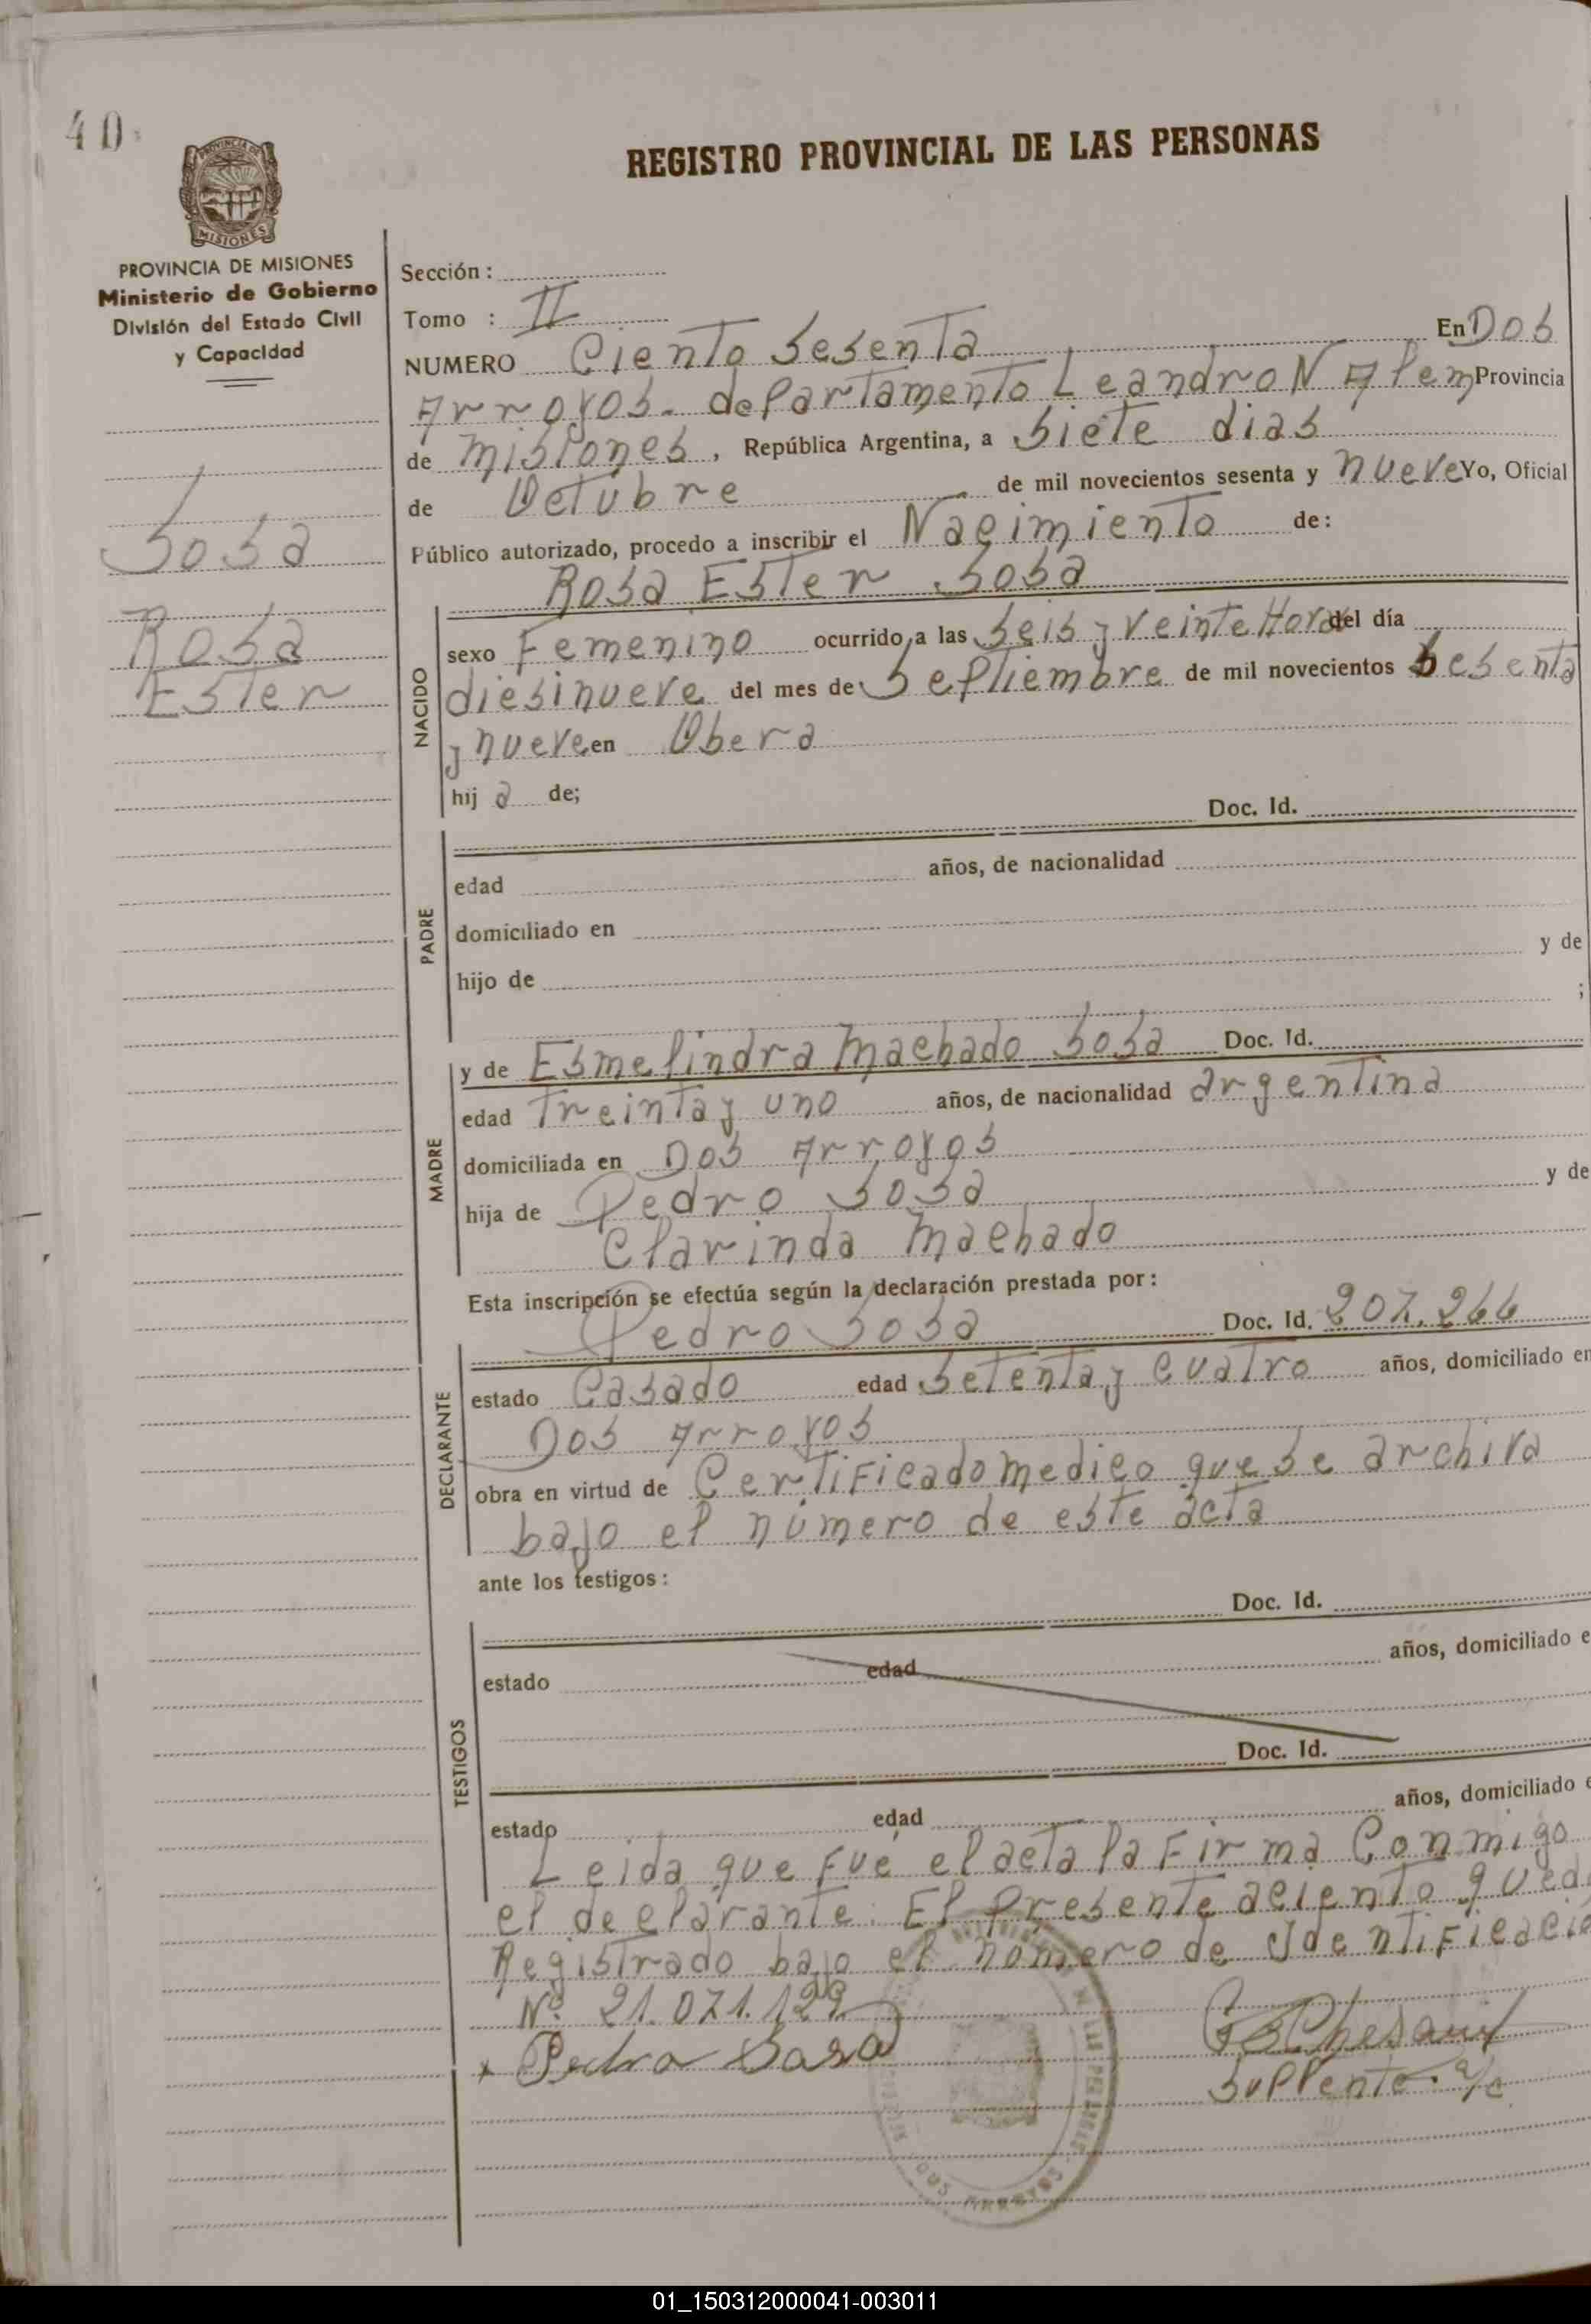 40
REGISTRO PROVINCIAL DE LAS PERSONAS
PROVINCIA DE MISIONES
Ministerio de Gobierno
División del Estado Civil
y Capacidad
Sosa
Rosa
Ester
Sección:
Tomo : II
NUMERO Ciento Sesenta En Dos
Arroyos. departamento Leandro N Alem Provincia
de misiones, República Argentina, a Siete dias
de Octubre de mil novecientos sesenta y nueve Yo, Oficial
Público autorizado, procedo a inscribir el Nacimiento de:
Rosa Ester Sosa
NACIDO
sexo Femenino ocurrido, a las Seis y Veinte Horas del día
diesinueve del mes de Septiembre de mil novecientos Sesenta
y nueve en Obera
hij a de;
Doc. Id.
PADRE
edad años, de nacionalidad
domiciliado en
hijo de y de
;
MADRE
y de Esmelindra Machado Sosa Doc. Id.
edad Treinta y uno años, de nacionalidad argentina
domiciliada en Dos Arroyos
hija de Pedro Sosa y de
Clarinda Machado
Esta inscripción se efectúa según la declaración prestada por:
Pedro Sosa Doc. Id. 207.266
DECLARANTE
estado Casado edad Setenta y Cuatro años, domiciliado en
Dos Arroyos
obra en virtud de Certificado medico que se archiva
bajo el número de este acta
ante los testigos:
Doc. Id.
TESTIGOS
estado edad años, domiciliado e
Doc. Id.
estado edad años, domiciliado e
Leida que fue el acta la Firma Conmigo
el declarante. El presente aciento queda
Registrado bajo el número de Identificació
Nº 21.071.129
x Pedro Sosa
Suplente a/c
DOS ARROYOS
01_150312000041-003011